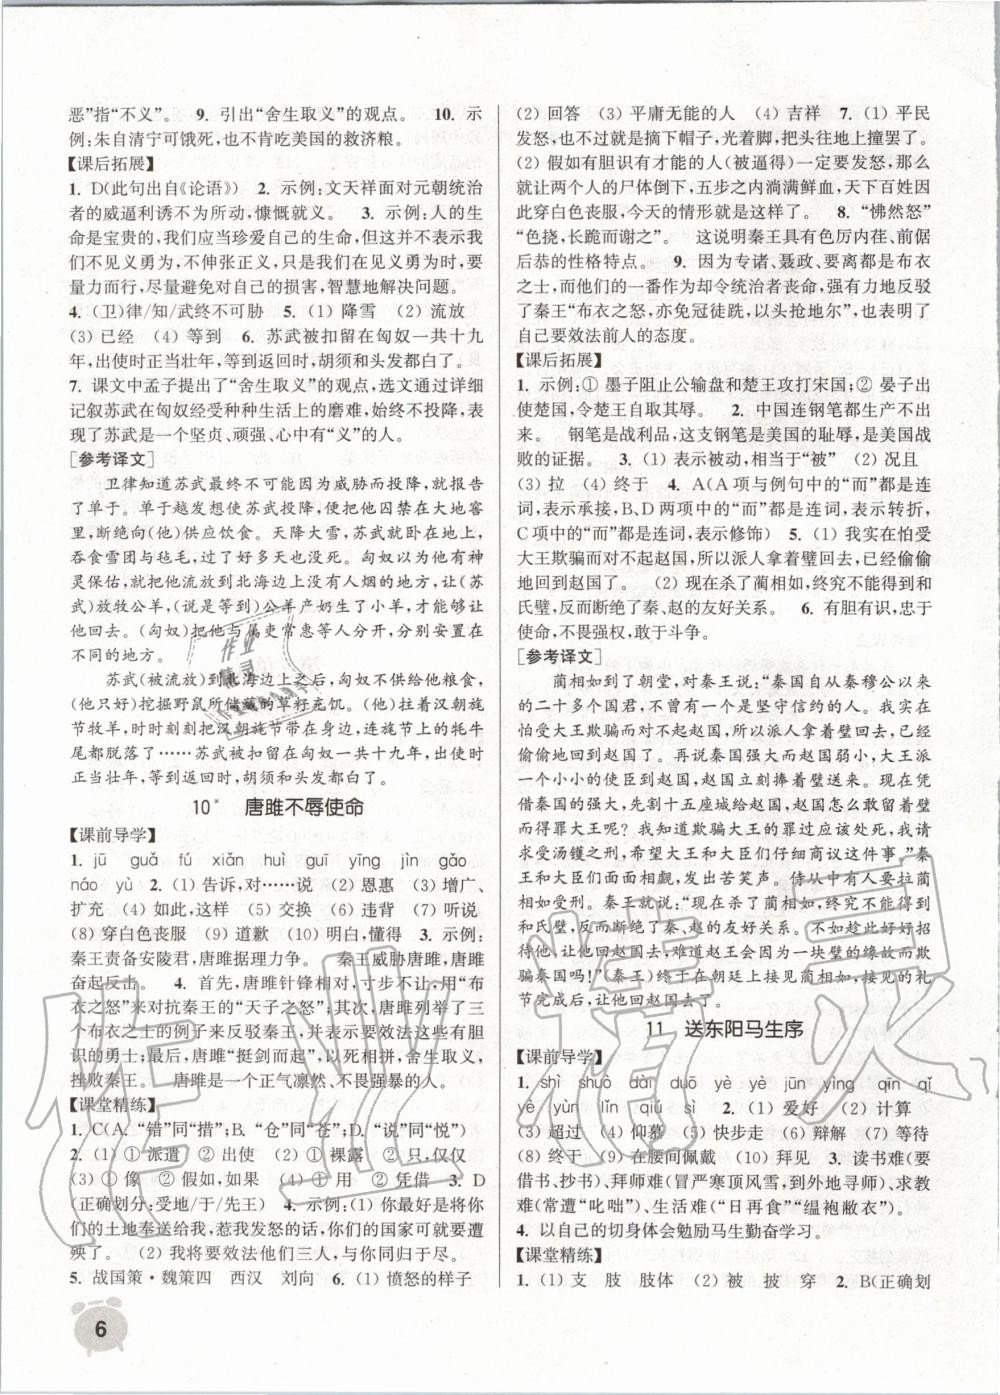 恶”指“不义”。 9. 引出“舍生取义”的观点。 10. 示
例:朱自清宁可饿死,也不肯吃美国的救济粮。
【课后拓展】
1. D(此句出自《论语》) 2. 示例:文天祥面对元朝统治
者的威逼利诱不为所动,慷慨就义。 3. 示例:人的生
命是宝贵的,我们应当珍爱自己的生命,但这并不表示我
们不见义勇为,不伸张正义,只是我们在见义勇为时,要
量力而行,尽量避免对自己的伤害,智慧地解决问题。
4. (卫)律/知/武终不可胁 5. (1) 降雪 (2) 流放
(3) 已经 (4) 等到 6. 苏武被扣留在匈奴一共十九
年,出使时正当壮年,等到返回时,胡须和头发都白了。
7. 课文中孟子提出了“舍生取义”的观点,选文通过详细
记叙苏武在匈奴经受种种生活上的磨难,始终不投降,表
现了苏武是一个坚贞、顽强、心中有“义”的人。
[参考译文]
卫律知道苏武最终不可能因为威胁而投降,就报告
了单于。单于越发想使苏武投降,便把他囚禁在大地窖
里,断绝向(他)供应饮食。天降大雪,苏武就躺下嚼雪,
吞食雪团与毡毛,过了好多天也没死。匈奴以为他有神
灵保佑,就把他流放到北海边上没有人烟的地方,让(苏
武)放牧公羊,(说)(等到)公羊产奶生了小羊,才能够让
他回去。(匈奴)把他与属吏常惠等人分开,分别安置在
不同的地方。
苏武(被流放)到北海边上之后,匈奴不供给他粮食,
(他只好)挖掘野鼠所储藏的草籽充饥。(他)拄着汉朝旄
节牧羊,时时刻刻把汉朝旄节带在身边,连节上的牦牛
尾都脱落了……苏武被扣留在匈奴一共十九年,出使时
正当壮年,等到返回时,胡须和头发都白了。
10* 唐雎不辱使命
【课前导学】
1. jū guǎ fú xiǎn huì guī yīng jìn gǎo
náo yù 2. (1) 告诉,对……说 (2) 恩惠 (3) 增广、
扩充 (4) 如此,这样 (5) 交换 (6) 违背 (7) 听说
(8) 穿白色丧服 (9) 道歉 (10) 明白,懂得 3. 示例:
秦王责备安陵君,唐雎据理力争。 秦王威胁唐雎,唐雎
奋起反击。 4. 首先,唐雎针锋相对,寸步不让,用“布
衣之怒”来对抗秦王的“天子之怒”;其次,唐雎列举了三
个布衣之士的例子来反驳秦王,并表示要效法这些有胆
识的勇士;最后,唐雎“挺剑而起”,以死相拼,舍生取义,
挫败秦王。 唐雎是一个正气凛然、不畏强暴的人。
【课堂精练】
1. C(A.“错”同“措”;B.“仓”同“苍”;D.“说”同“悦”)
2. (1) ① 派遣 ② 出使 (2) ① 裸露 ② 只,仅仅
(3) ① 信念 ② 像 (4) ① 用 ② 凭借 3. D
(正确划分:受地/于/先王) 4. 示例:(1) 你最好是将你
们的土地奉送给我,惹我发怒的话,你们的国家可就要遭
殃了。 (2) 我将要效法他们三人,与你同归于尽。
5. 战国策·魏策四 西汉 刘向 6. (1) 愤怒的样子
6
(2) 回答 (3) 平庸无能的人 (4) 吉祥 7. (1) 平民
发怒,也不过就是摘下帽子,光着脚,把头往地上撞罢了。
(2) 假如有胆识有才能的人(被逼得)一定要发怒,那么
就让两个人的尸体倒下,五步之内淌满鲜血,天下百姓因
此穿白色丧服,今天的情形就是这样了。 8. “怫然怒”
“色挠,长跪而谢之”。 这说明秦王具有色厉内荏、前倨
后恭的性格特点。 9. 因为专诸、聂政、要离都是布衣
之士,而他们的一番作为却令统治者丧命,很有力地反驳
了秦王“布衣之怒,亦免冠徒跣,以头抢地尔”,也表明了
自己要效法前人的态度。
【课后拓展】
1. 示例:① 墨子阻止公输盘和楚王攻打宋国;② 晏子出
使楚国,令楚王自取其辱。 2. 中国连钢笔都生产不出
来。 钢笔是战利品,这支钢笔是美国的耻辱,是美国战
败的证据。 3. (1) 表示被动,相当于“被” (2) 况且
(3) 拉 (4) 终于 4. A(A项与例句中的“而”都是连
词,表示承接,B、D两项中的“而”都是连词,表示转折,
C项中的“而”都是连词,表示修饰) 5. (1) 我实在怕受
大王欺骗而对不起赵国,所以派人拿着璧回去,已经偷偷
地回到赵国了。 (2) 现在杀了蔺相如,终究不能得到和
氏璧,反而断绝了秦、赵的友好关系。 6. 有胆有识,忠于
使命,不畏强权,敢于斗争。
[参考译文]
蔺相如到了朝堂,对秦王说:“秦国自从秦穆公以来
的二十多个国君,不曾有一个是坚守信约的人。我实在
怕受大王欺骗而对不起赵国,所以派人拿着璧回去,已经
偷偷地回到赵国了。再说秦国强大而赵国弱小,大王派
一个小小的使臣到赵国,赵国立刻捧着璧送来。现在凭
借秦国的强大,先割十五座城给赵国,赵国怎么敢留着璧
而得罪大王呢?我知道欺骗大王的罪过应该处死,我请
求受汤镬之刑,希望大王和大臣们仔细商议这件事。”秦
王和大臣们面面相觑,发出苦笑声。侍从中有人要拉蔺
相如去受刑。秦王就说:“现在杀了蔺相如,终究不能得
到和氏璧,反而断绝了秦、赵的友好关系。不如趁此好好招待
他,让他回赵国去,难道赵王会因为一块璧的缘故而欺
骗秦国吗!”(秦王)终于在朝廷上接见相如,接见的礼
节完成后,让他回赵国去了。
11 送东阳马生序
【课前导学】
1. shì shuò dài duō yè yè jūn yìng qīn qǐ
yè yùn lǐn qiú sì 2. (1) 爱好 (2) 计算
(3) 超过 (4) 仰慕 (5) 快步走 (6) 辩解 (7) 等待
(8) 终于 (9) 在腰间佩戴 (10) 拜见 3. 读书难(要
借书、抄书)、拜师难(冒严寒顶风雪,到外地寻师)、求教
难(常遭“叱咄”)、生活难(“日再食”“缊袍敝衣”)。
4. 以自己的切身体会勉励马生勤奋学习。
【课堂精练】
1. (1) 支 肢 肢体 (2) 被 披 穿 2. B(正确划